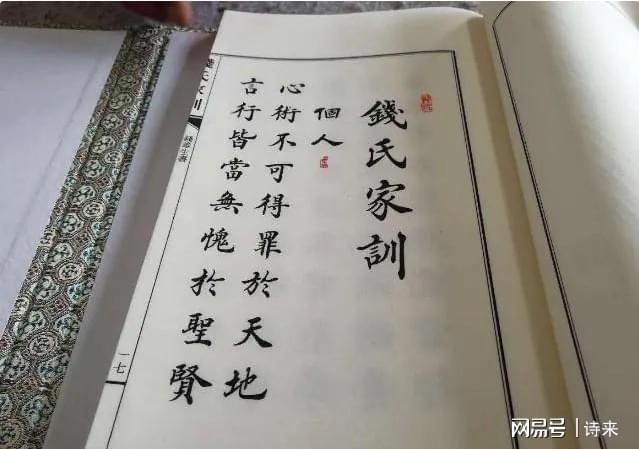 錢氏家訓
個人
心術不可得罪於天地
言行皆當無愧於聖賢
錢氏家訓
一七
网易号 | 诗来